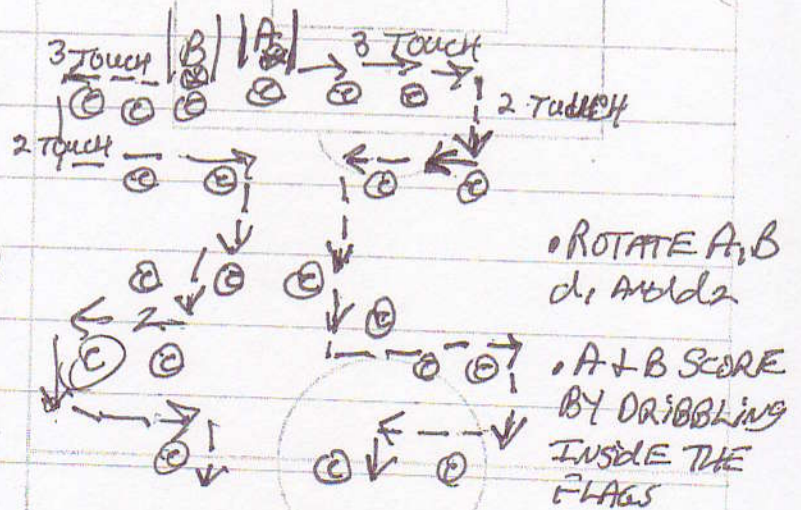 3 TOUCH |B| |A| 3 TOUCH
© © © © © ©
2 TOUCH
2 TOUCH
© © © ©
• ROTATE A, B
d1 AND d2
© © © ©
© © © ©
• A + B SCORE
BY DRIBBLING
INSIDE THE
FLAGS
© © ©